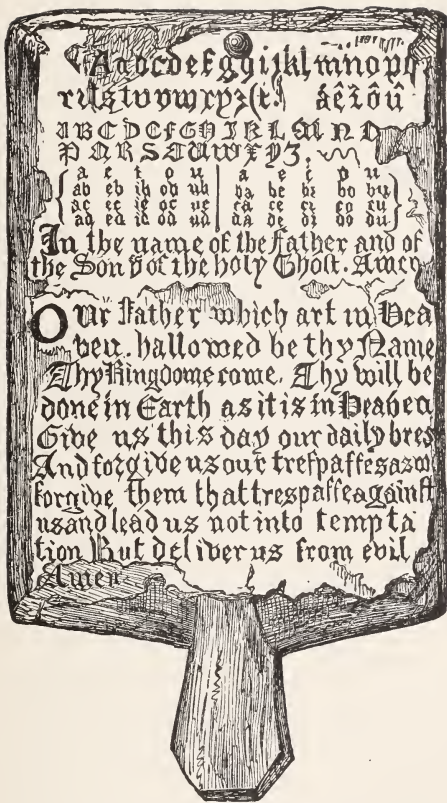 Aabcdefghijklmnopq
rſstuvwxyz&. áêîôû
ABCDEFGHIKLMNO
PQRSTUWXYZ.
a e i o u a e i o u
ab eb ib ob ub ba be bi bo bu
ac ec ic oc uc ca ce ci co cu
ad ed id od ud da de di do du
In the name of the Father and of
the Son & of the holy Ghoſt. Amen
Our Father which art in Hea
ven. hallowed be thy Name
Thy Kingdome come, Thy will be
done in Earth as it is in Heaven
Give us this day our daily bred
And forgive us our treſpaſſes as we
forgive them that trespaſſe againſt
us and lead us not into tempta
tion But deliver us from evil
Amen.